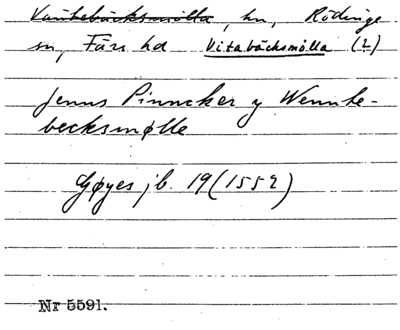 Vanbebäcksmölla, hn, Rödinge
sn, Färs hd Vitabäcksmölla (?)
Jenns Pinncker y Wennbe-
becksmølle
Gøyes jb. 19 (1552)
Nr 5591.